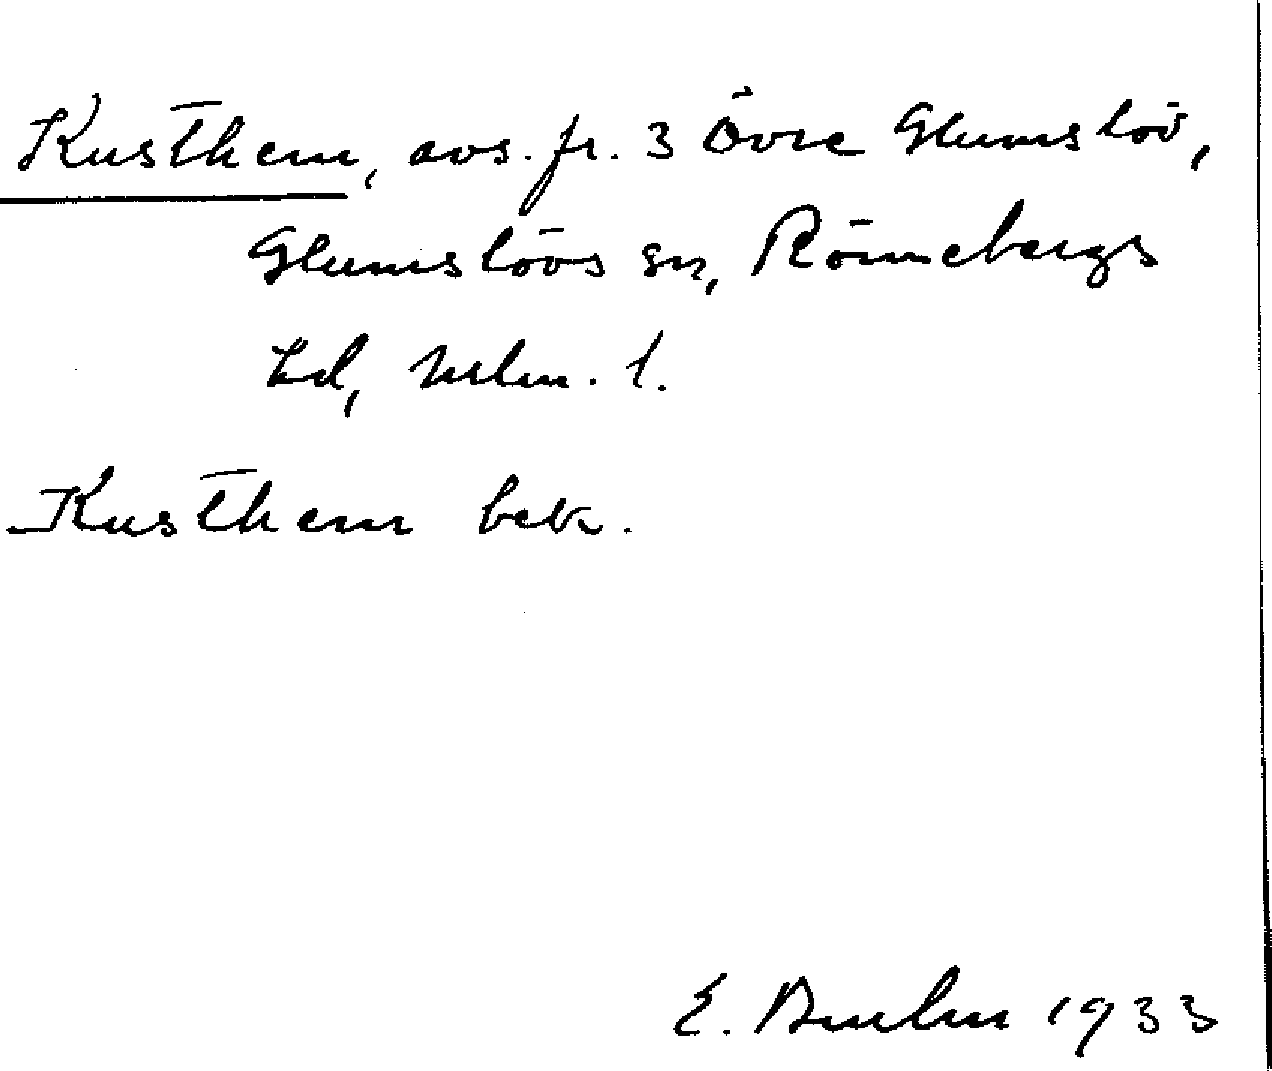 Kusthem, avs. fr. 3 Övre Glumslöv,
Glumslövs sn, Rönnebergs
hd, Mlm. l.
Kusthem bebr.
E. 1933